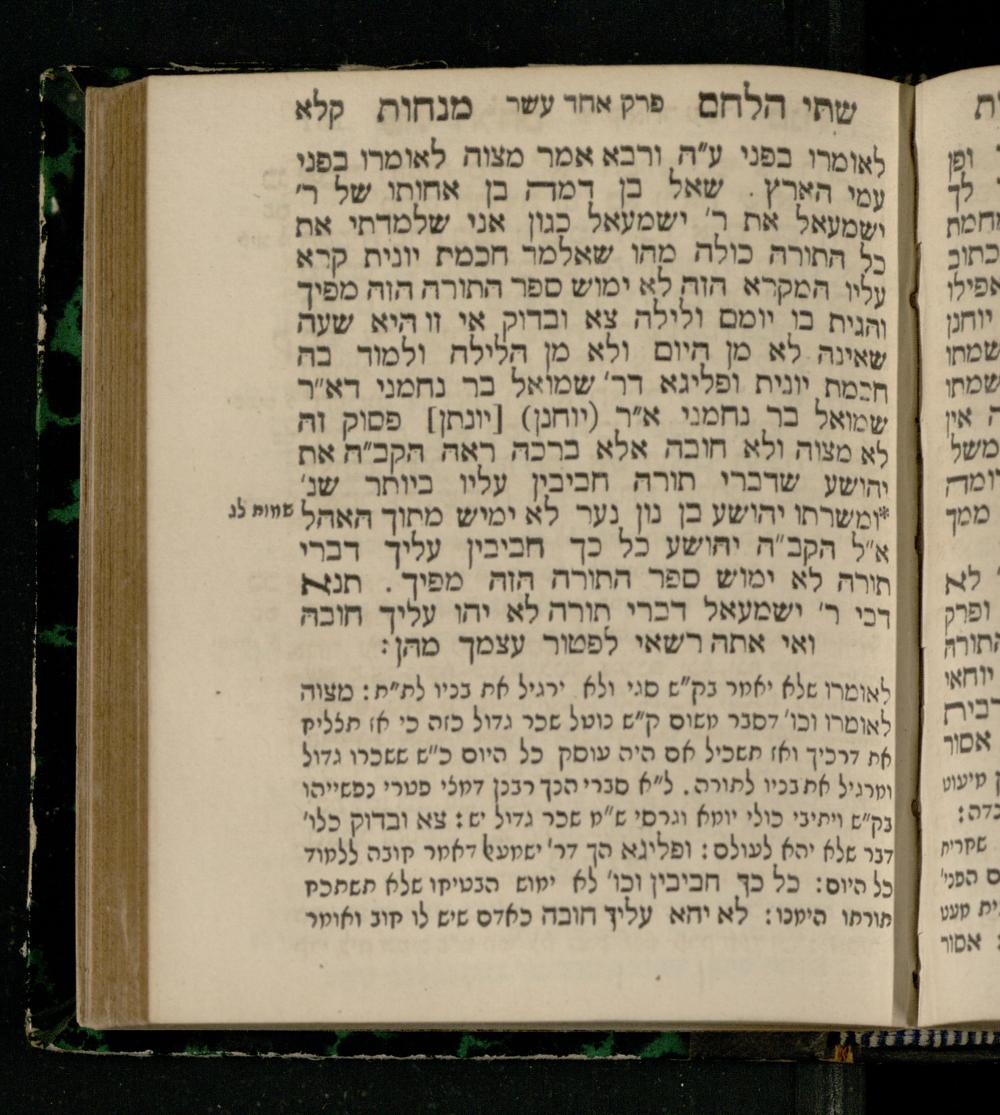 שתי הלחם פרק אחד עשר מנחות קלא
לאומרו בפני ע"ה ורבא אמר מצוה לאומרו בפני
עמי הארץ . שאל בן דמה בן אחותו של ר'
ישמעאל את ר' ישמעאל כגון אני שלמדתי את
כל התורה כולה מהו שאלמד חכמת יונית קרא
עליו המקרא הזה לא ימוש ספר התורה הזה מפיך
והגית בו יומם ולילה צא ובדוק אי זו היא שעה
שאינה לא מן היום ולא מן הלילה ולמוד בה
חכמת יונית ופליגא דר' שמואל בר נחמני דא"ר
שמואל בר נחמני א"ר (יוחנן) [יונתן] פסוק זה
לא מצוה ולא חובה אלא ברכה ראה הקב"ה את
יהושע שדברי תורה חביבין עליו ביותר שנ'
*ומשרתו יהושע בן נון נער לא ימיש מתוך האהל
שמות לג
א"ל הקב"ה יהושע כל כך חביבין עליך דברי
תורה לא ימוש ספר התורה הזה מפיך . תנא
דבי ר' ישמעאל דברי תורה לא יהו עליך חובה
ואי אתה רשאי לפטור עצמך מהן :
לאומרו שלא יאמר בק"ש סגי ולא ירגיל את בניו לת"ת : מצוה
לאומרו וכו' דסבר משום ק"ש נוטל שכר גדול כזה כי אז תצליח
את דרכיך ואז תשכיל אם היה עוסק כל היום כ"ש ששכרו גדול
ומרגיל את בניו לתורה . ל"א סברי הנך רבנן דמצי פטרי נפשייהו
בק"ש ויתיבי כולי יומא וגרסי ש"מ שכר גדול יש : צא ובדוק כלו'
דבר שלא יהא לעולם : ופליגא הך דר' ישמעאל דאמר חובה ללמוד
כל היום : כל כך חביבין וכו' לא ימוש הבטיחו שלא תשתכח
תורתו הימנו : לא יהא עליך חובה כאדם שיש לו חוב ואומר